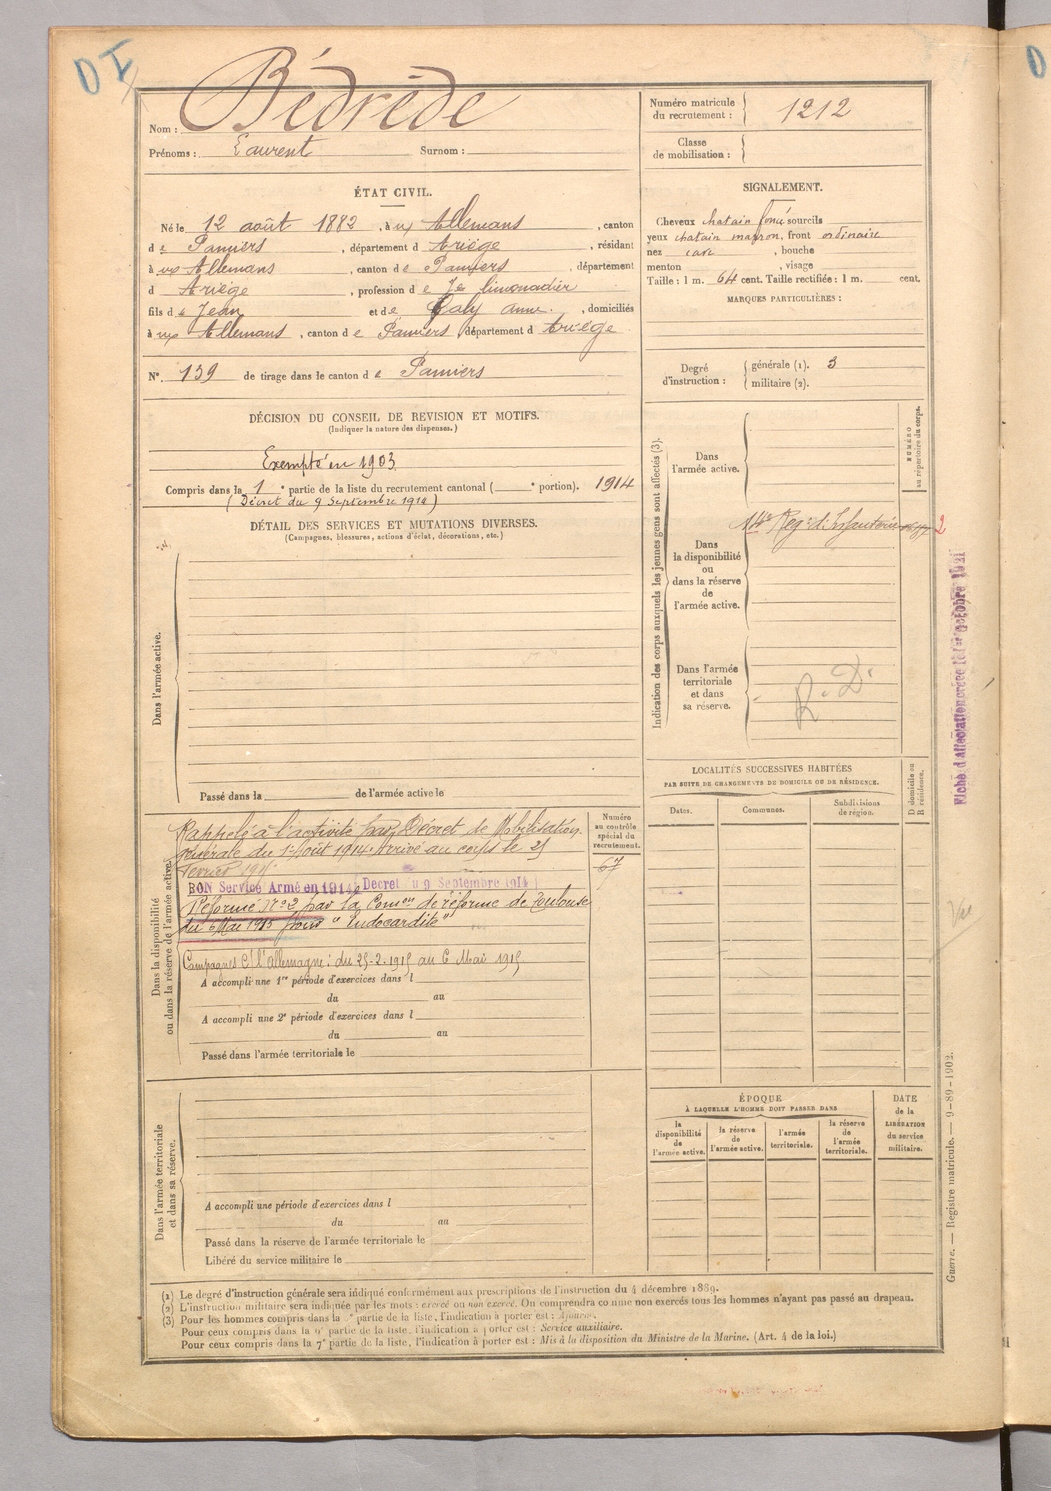 D I
Nom : Bédrède
Prénoms : Laurent Surnom :
Numéro matricule du recrutement : 1212
Classe de mobilisation :
ÉTAT CIVIL.
Né le 12 août 1882, à ux Allemans, canton
d e Pamiers, département d Ariège, résidant
à ux Allemans, canton d e Pamiers, département
d Ariège, profession d e limonadier
fils d e Jean et d e Galy Anne, domiciliés
à ux Allemans, canton d e Pamiers, département d Ariège
N° 139 de tirage dans le canton d e Pamiers
SIGNALEMENT.
Cheveux chatain foncé sourcils
yeux chatain marron, front ordinaire
nez cave, bouche
menton, visage
Taille : 1 m. 64 cent. Taille rectifiée : 1 m. cent.
MARQUES PARTICULIÈRES :
Degré d'instruction : générale (1). 3
militaire (2).
DÉCISION DU CONSEIL DE REVISION ET MOTIFS.
(Indiquer la nature des dispenses.)
Exempté en 1903
Compris dans la 1e partie de la liste du recrutement cantonal ( e portion). 1914
(Décret du 9 Septembre 1914)
DÉTAIL DES SERVICES ET MUTATIONS DIVERSES.
(Campagnes, blessures, actions d'éclat, décorations, etc.)
Dans l'armée active.
Passé dans la de l'armée active le
Indication des corps auxquels les jeunes gens sont affectés (3).
NUMÉRO au répertoire du corps.
Dans l'armée active.
Dans la disponibilité ou dans la réserve de l'armée active.
14e Reg. d'Infanterie
2
Dans l'armée territoriale et dans sa réserve.
R. D.
Fiche d'affectation créée le 1er octobre 1921
LOCALITÉS SUCCESSIVES HABITÉES
PAR SUITE DE CHANGEMENTS DE DOMICILE OU DE RÉSIDENCE.
Dates.
Communes.
Subdivisions de région.
D domicile ou R résidence.
Dans la disponibilité ou dans la réserve de l'armée active.
Numéro au contrôle spécial du recrutement.
67
Rappelé à l'activité par Décret de Mobilisation
générale du 1er Août 1914. Arrivé au corps le 25
Février 1915
BON Service Armé en 1914 (Decret du 9 Septembre 1914)
Réformé No 2 par la Comon de réforme de Toulouse
du 6 Mai 1915 pour "Endocardite"
Campagnes C. l'allemagne : du 25-2-1915 au 6 Mai 1915
A accompli une 1re période d'exercices dans l
du au
A accompli une 2e période d'exercices dans l
du au
Passé dans l'armée territoriale le
Vu
Dans l'armée territoriale et dans sa réserve.
A accompli une période d'exercices dans l
du au
Passé dans la réserve de l'armée territoriale le
Libéré du service militaire le
ÉPOQUE
À LAQUELLE L'HOMME DOIT PASSER DANS
la disponibilité de l'armée active.
la réserve de l'armée active.
l'armée territoriale.
la réserve de l'armée territoriale.
DATE de la LIBÉRATION du service militaire.
Guerre. — Registre matricule. — 9-89-1902.
(1) Le degré d'instruction générale sera indiqué conformément aux prescriptions de l'instruction du 4 décembre 1889.
(2) L'instruction militaire sera indiquée par les mots : exercé ou non exercé. On comprendra comme non exercés tous les hommes n'ayant pas passé au drapeau.
(3) Pour les hommes compris dans la partie de la liste, l'indication à porter est : Ajourné.
Pour ceux compris dans la partie de la liste, l'indication à porter est : Service auxiliaire.
Pour ceux compris dans la 7e partie de la liste, l'indication à porter est : Mis à la disposition du Ministre de la Marine. (Art. 4 de la loi.)